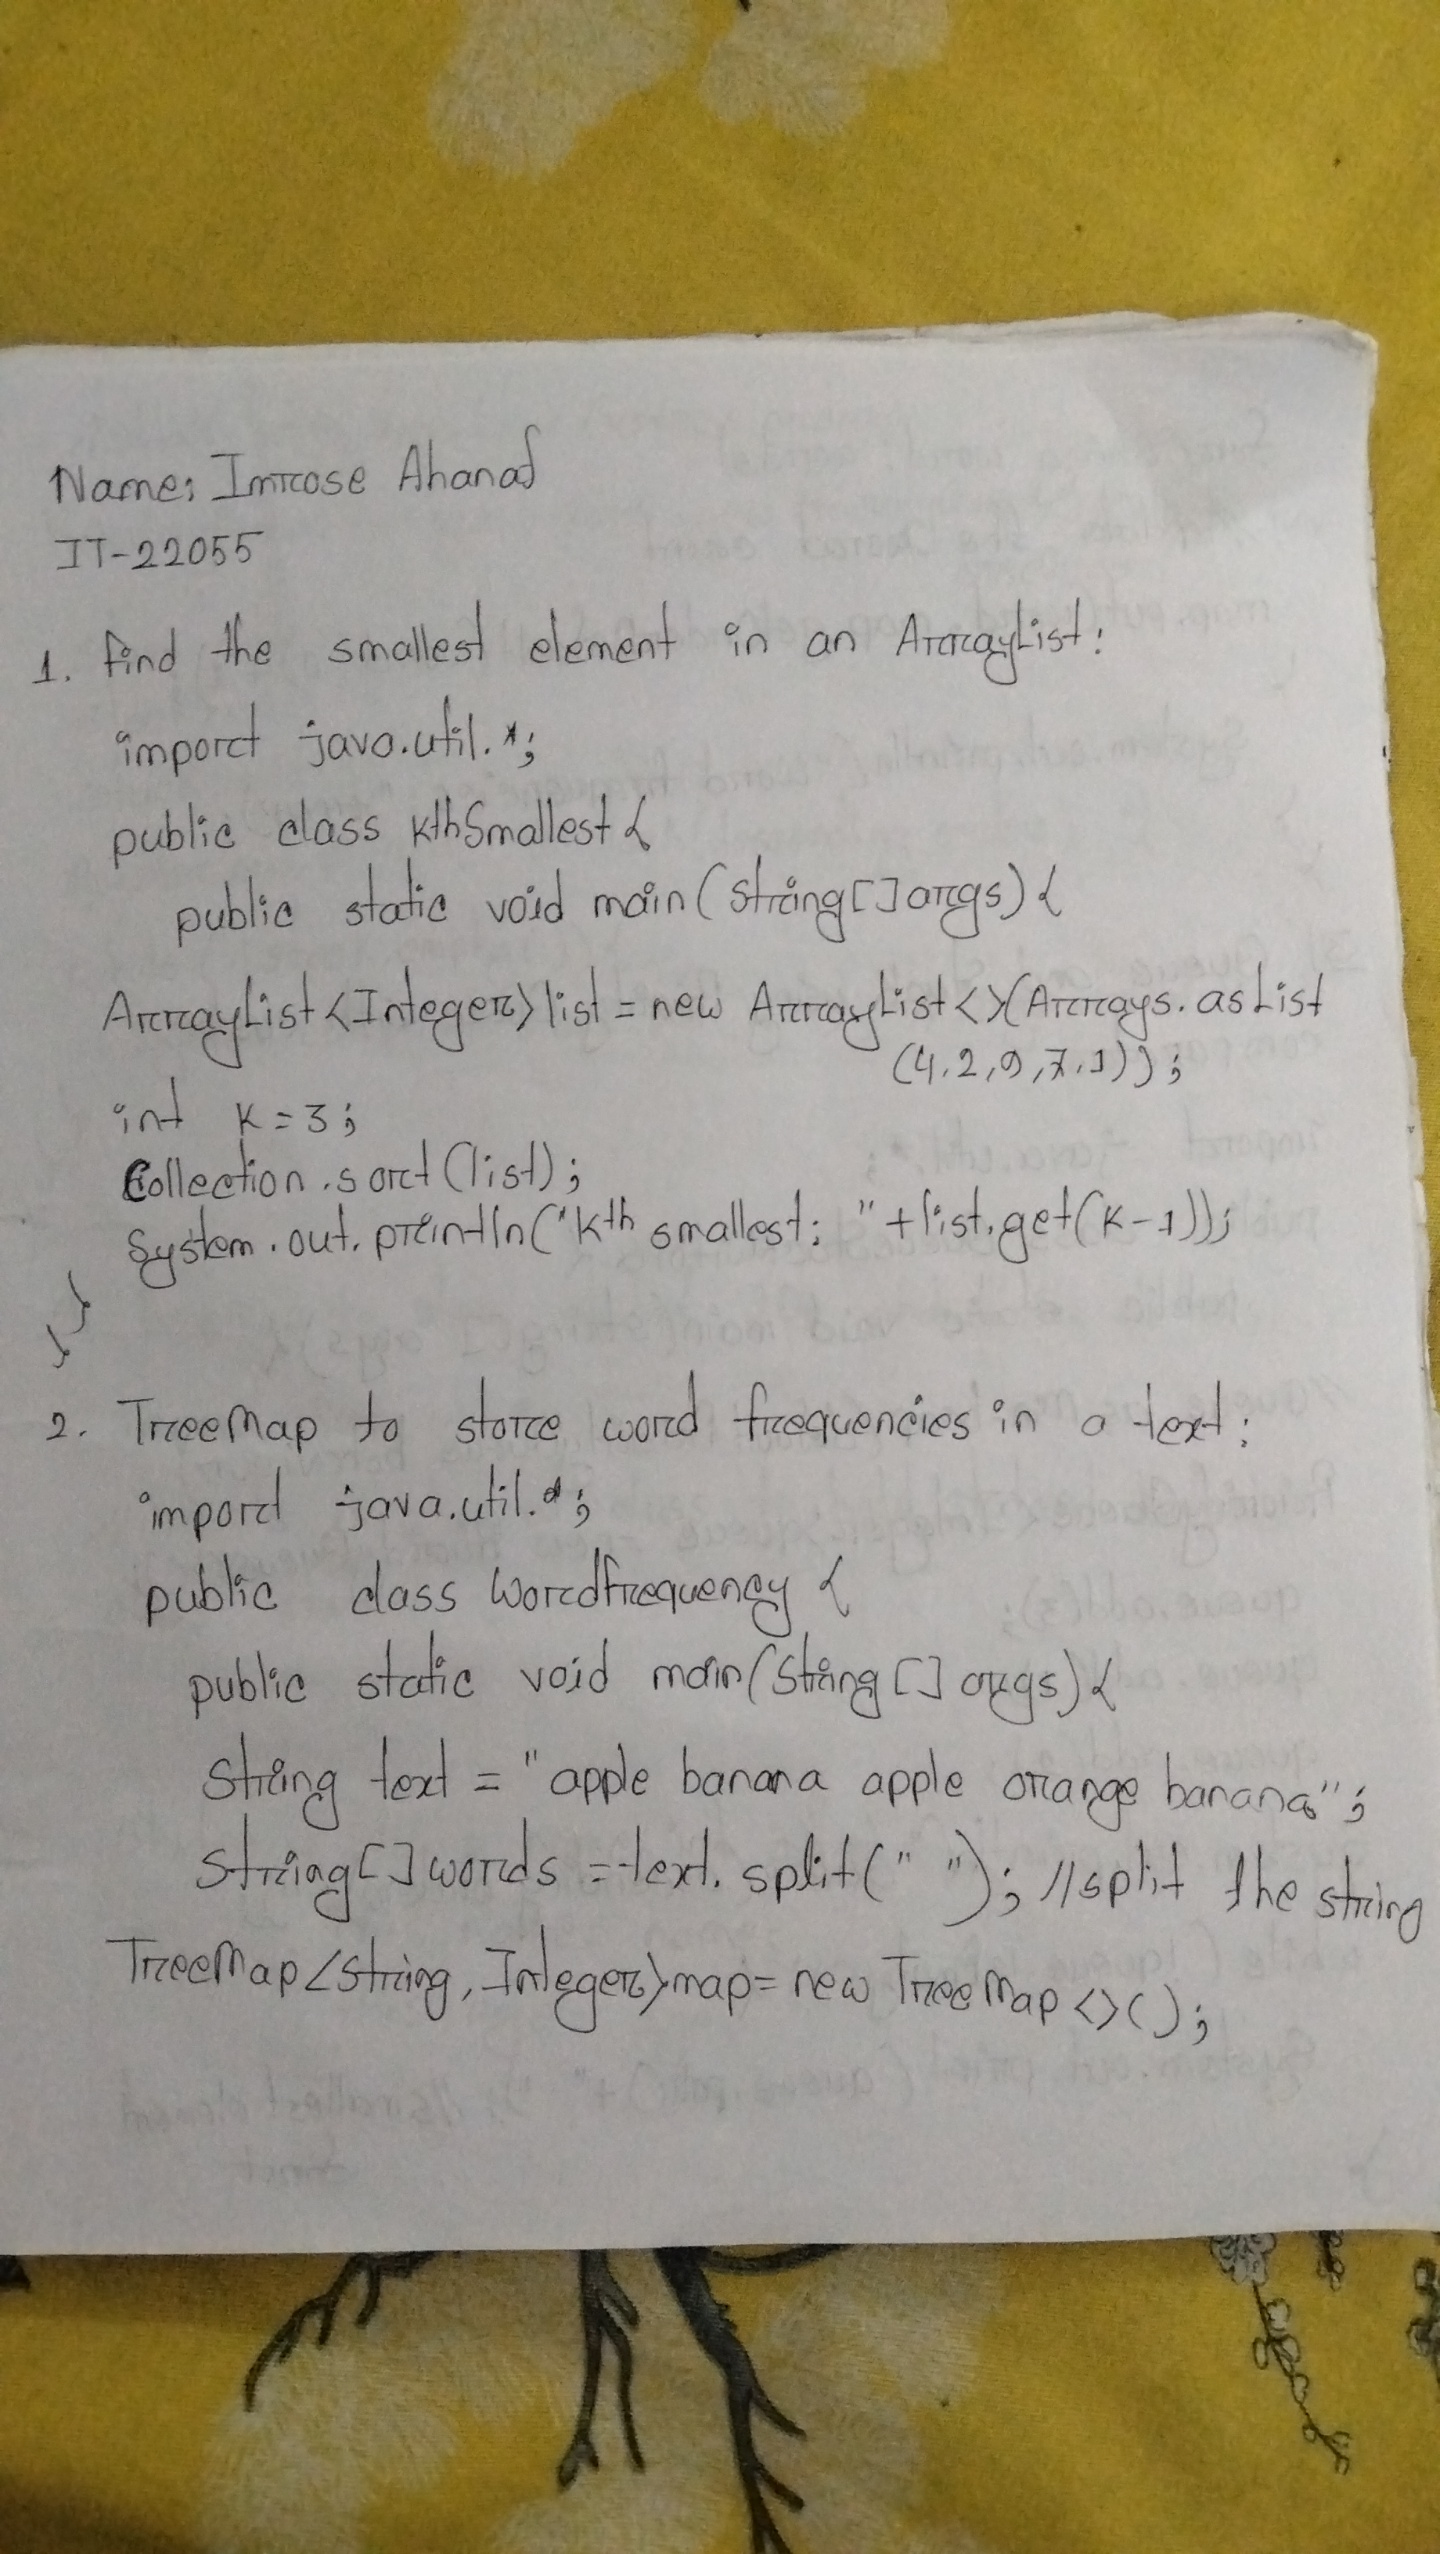 Name: Imrose Ahanaf
IT-22055
1. find the smallest element in an ArrayList:
import java.util.*;
public class KthSmallest {
public static void main(String[] args) {
ArrayList<Integer> list = new ArrayList<>(Arrays.asList
(4,2,9,7,1));
int K = 3;
Collection.sort(list);
System.out.println("Kth smallest: "+list.get(K-1));
}
}
2. TreeMap to store word frequencies in a text:
import java.util.*;
public class Wordfrequency {
public static void main(String[] args) {
String text = "apple banana apple orange banana";
String[] words = text.split(" "); //split the string
TreeMap<String, Integer> map = new TreeMap<>();